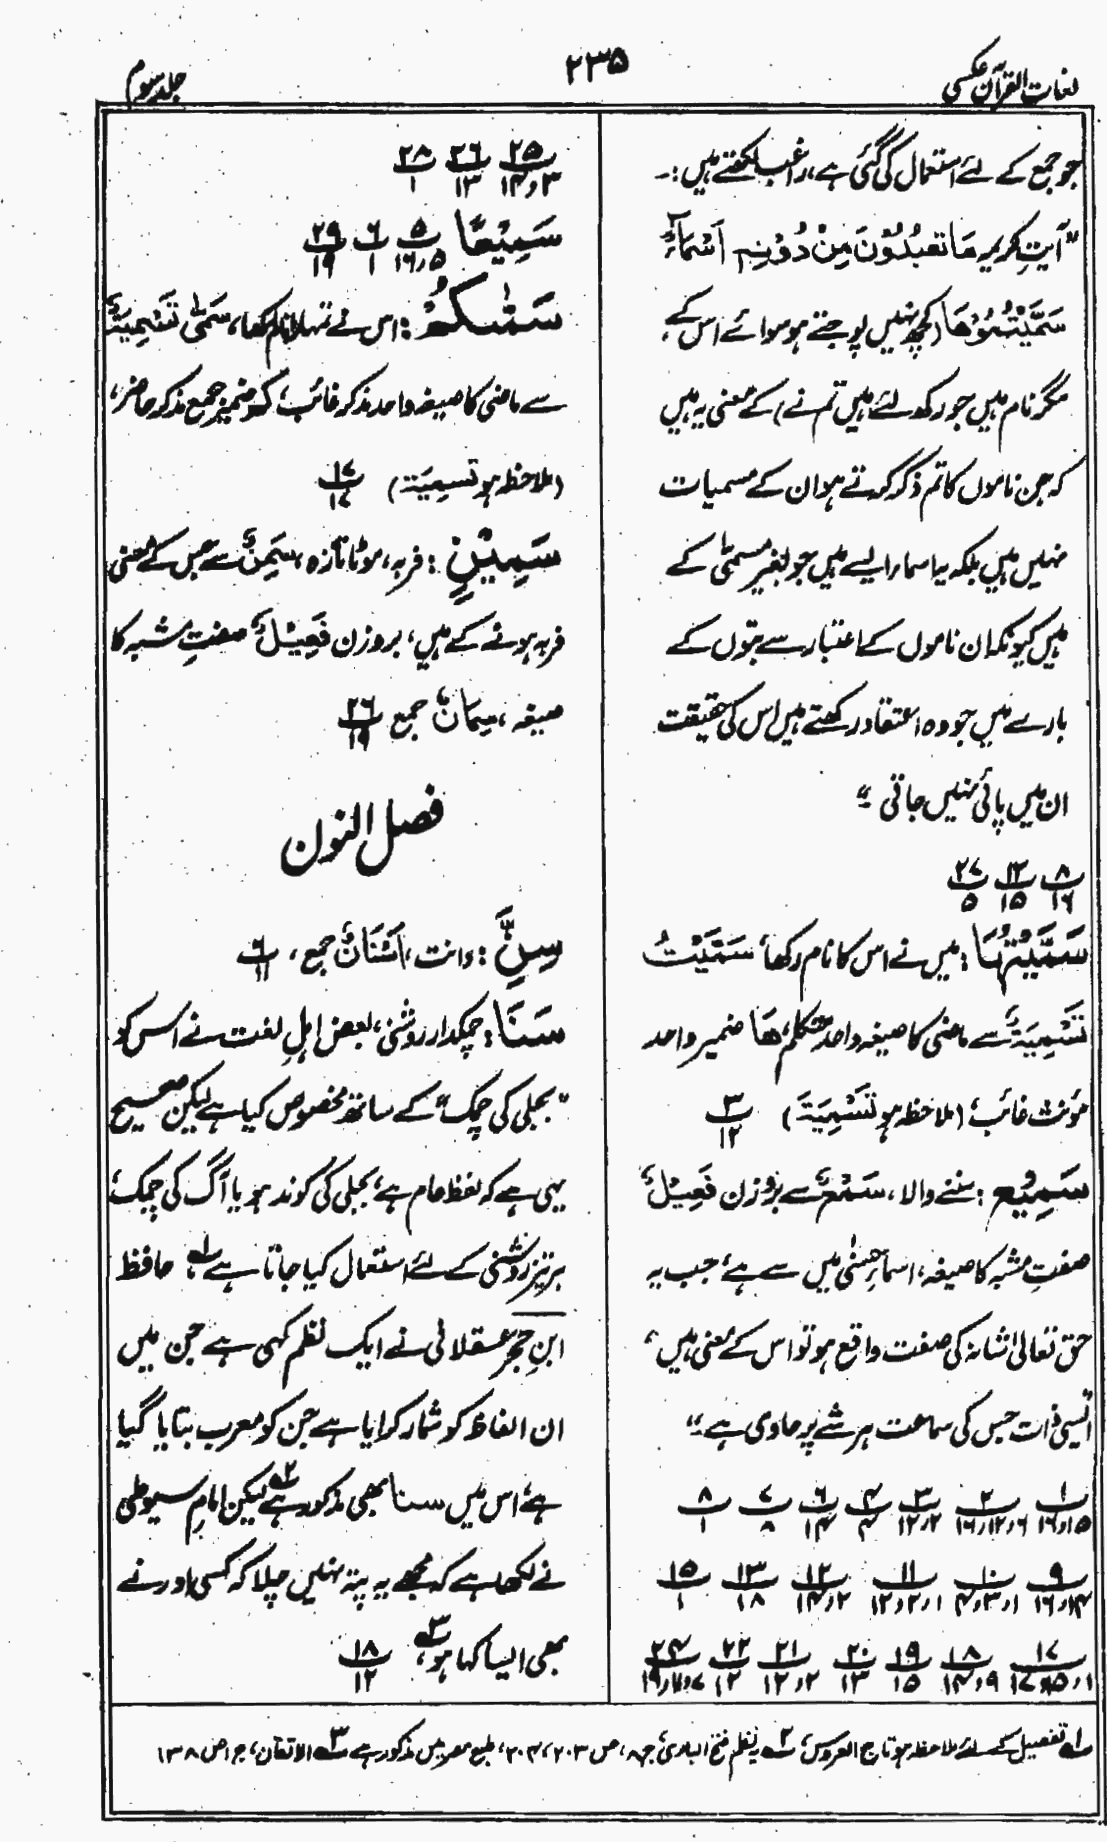 لغات القرآن عکسی
۲۳۵
جلد سوم
جو جمع کے لئے استعمال کی گئی ہے، راغب لکھتے ہیں :۔
"آیتِ کریمہ مَا تَعْبُدُوْنَ مِنْ دُوْنِہٖ اَسْمَآءً
سَمَّیْتُمُوْھَا (کچھ نہیں پوجتے ہو سوائے اس کے
مگر نام ہیں جو رکھ لئے ہیں تم نے) کے معنی یہ ہیں
کہ جن ناموں کا تم ذکر کرتے ہو ان کے مسمیات
نہیں ہیں بلکہ یہ اسماء ایسے ہیں جو بغیر مسمّٰی کے
ہیں کیونکہ ان ناموں کے اعتبار سے بتوں کے
بارے میں جو وہ اعتقاد رکھتے ہیں اس کی حقیقت
ان میں پائی نہیں جاتی ۔"
۸/۱۶ ۱۲/۱۵ ۲۷/۵
سَمَّیْتُہَا : میں نے اس کا نام رکھا، سَمَّیْتُ
تَسْمِیَۃٌ سے ماضی کا صیغہ واحد متکلم، ھَا ضمیر واحد
مؤنث غائب، (ملاحظہ ہو تَسْمِیَۃَ) ۳/۱۲
سَمِیْعٌ : سننے والا، سَمْعٌ سے بروزن فَعِیْلٌ
صفتِ مشبہ کا صیغہ، اسماءِ حسنٰی میں سے ہے، جب یہ
حق تعالیٰ شانہٗ کی صفت واقع ہو تو اس کے معنی ہیں،
"ایسی ذات جس کی سماعت ہر شے پر حاوی ہے۔"
۱/۱۵و۱۶ ۲/۶و۱۲و۱۶ ۳/۲و۱۲ ۴/۴ ۶/۱۴ ۷/۸ ۸/۱
۹/۱۴و۱۶ ۱۰/۱و۳و۴ ۱۱/۱و۲و۱۲ ۱۲/۲و۱۴ ۱۳/۱۸ ۱۵/۱
۱۷/۱و۱۵و۱۷ ۱۸/۹و۱۴ ۱۹/۱۵ ۲۰/۱۳ ۲۱/۲و۱۲ ۲۲/۱۲ ۲۴
۲۵/۳و۱۴ ۲۶/۱۳ ۲۸/۱
سَمِیْعًا ۵/۵و۱۶ ۶/۱ ۲۹/۱۹
سَمّٰىکُمْ : اس نے تمہارا نام رکھا، سَمّٰی تَسْمِیَۃٌ
سے ماضی کا صیغہ واحد مذکر غائب، کُم ضمیر جمع مذکر حاضر،
(ملاحظہ ہو تَسمِیَۃَ) ۱۷/۱۷
سَمِیْنٍ : فربہ، موٹا تازہ، سِمَنٌ سے جس کے معنی
فربہ ہونے کے ہیں، بروزن فَعِیْلٌ صفتِ مشبہ کا
صیغہ، سِمَانٌ جمع ۲۶/۱۹
فصل النون
سِنٌّ : دانت، اَسْنَانٌ جمع، ۶/۱۱
سَنَا : چمکدار روشنی، بعض اہلِ لغت نے اس کو
"بجلی کی چمک" کے ساتھ مخصوص کیا ہے لیکن صحیح
یہی ہے کہ لفظ عام ہے، بجلی کی کوند ہو یا آگ کی چمک،
ہر تیز روشنی کے لئے استعمال کیا جاتا ہے ۱؎، حافظ
ابنِ حجر عسقلانی نے ایک نظم کہی ہے جن میں
ان الفاظ کو شمار کرایا ہے جن کو معرب بتایا گیا
ہے، اس میں سنا بھی مذکور ہے ۲؎ لیکن امام سیوطی
نے لکھا ہے کہ مجھے یہ پتہ نہیں چلا کہ کسی اور نے
بھی ایسا کہا ہو، ۳؎ ۱۸/۱۲
۱؎ تفصیل کے لئے ملاحظہ ہو تاج العروس، ۲؎ یہ نظم فتح الباری، ج ۸، ص ۲۰۳، ۲۰۴، طبع مصر میں مذکور ہے ۳؎ الاتقان، ج ا ص ۱۳۸